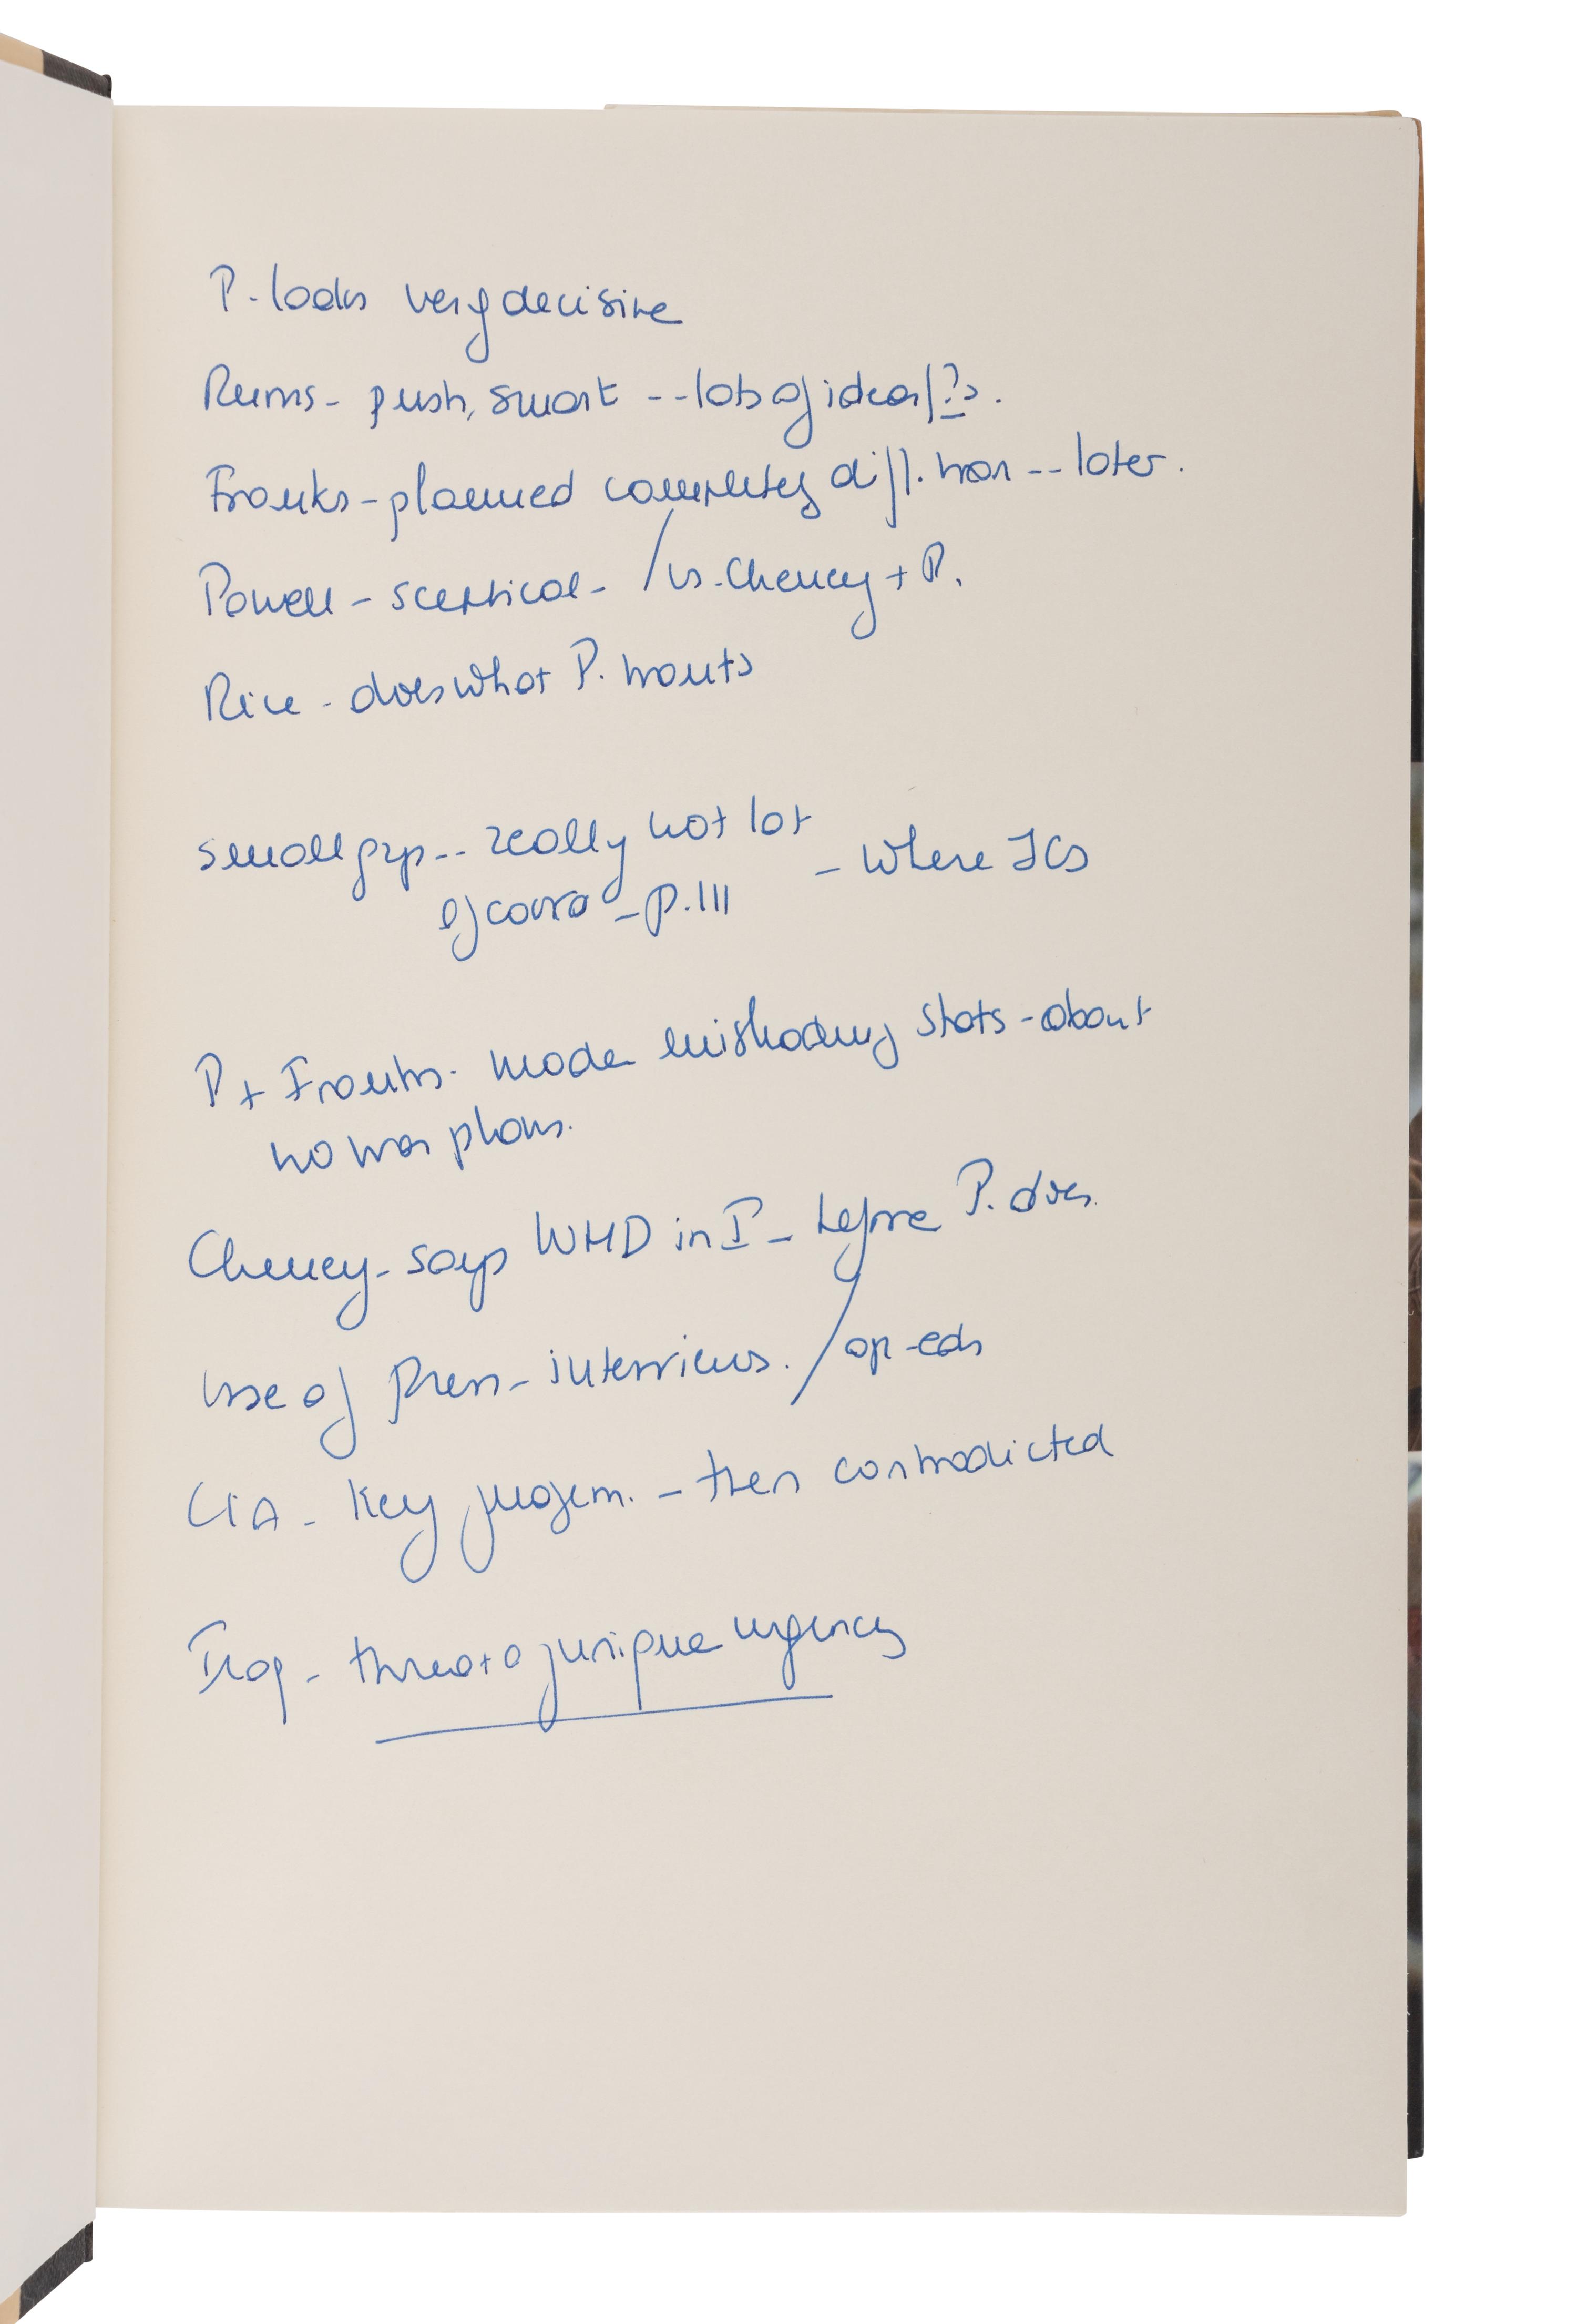 P. looks very decisive
Rums - push, smart -- lots of ideas/?s.
Franks - planned completely diff. war -- later.
Powell - sceptical - / vs. Cheney + P.
Rice - does what P. wants
small grp -- really not lot
of coord - p. 111 - Where JCS
P + Franks - made misleading stats - about
no war plans.
Cheney - says WMD in I - before P. does.
Use of Press - interviews. / op-eds
CIA - Key judgem. - then contradicted
Iraq - threat of unique urgency